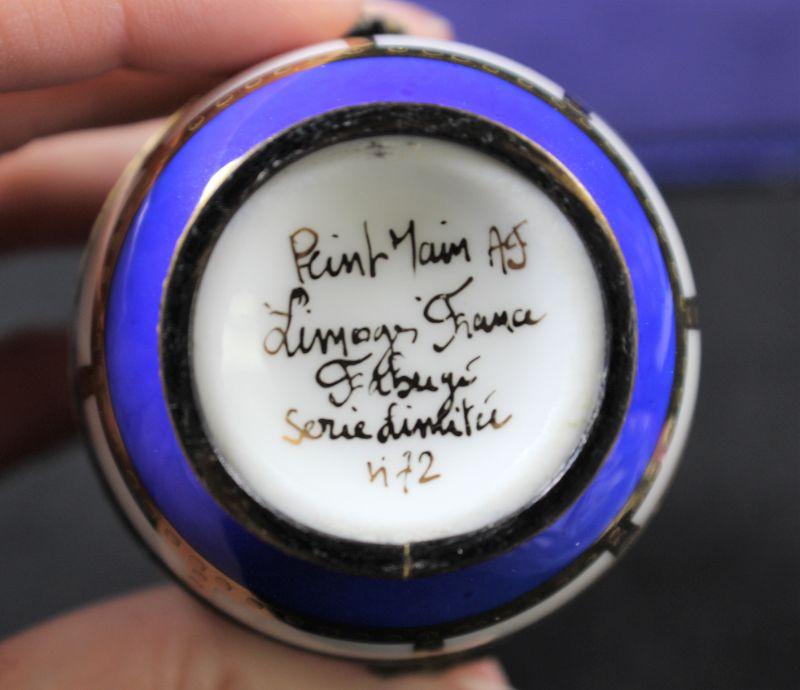 Peint Main AF
Limoges France
Fabergé
Serie Limitée
n 72